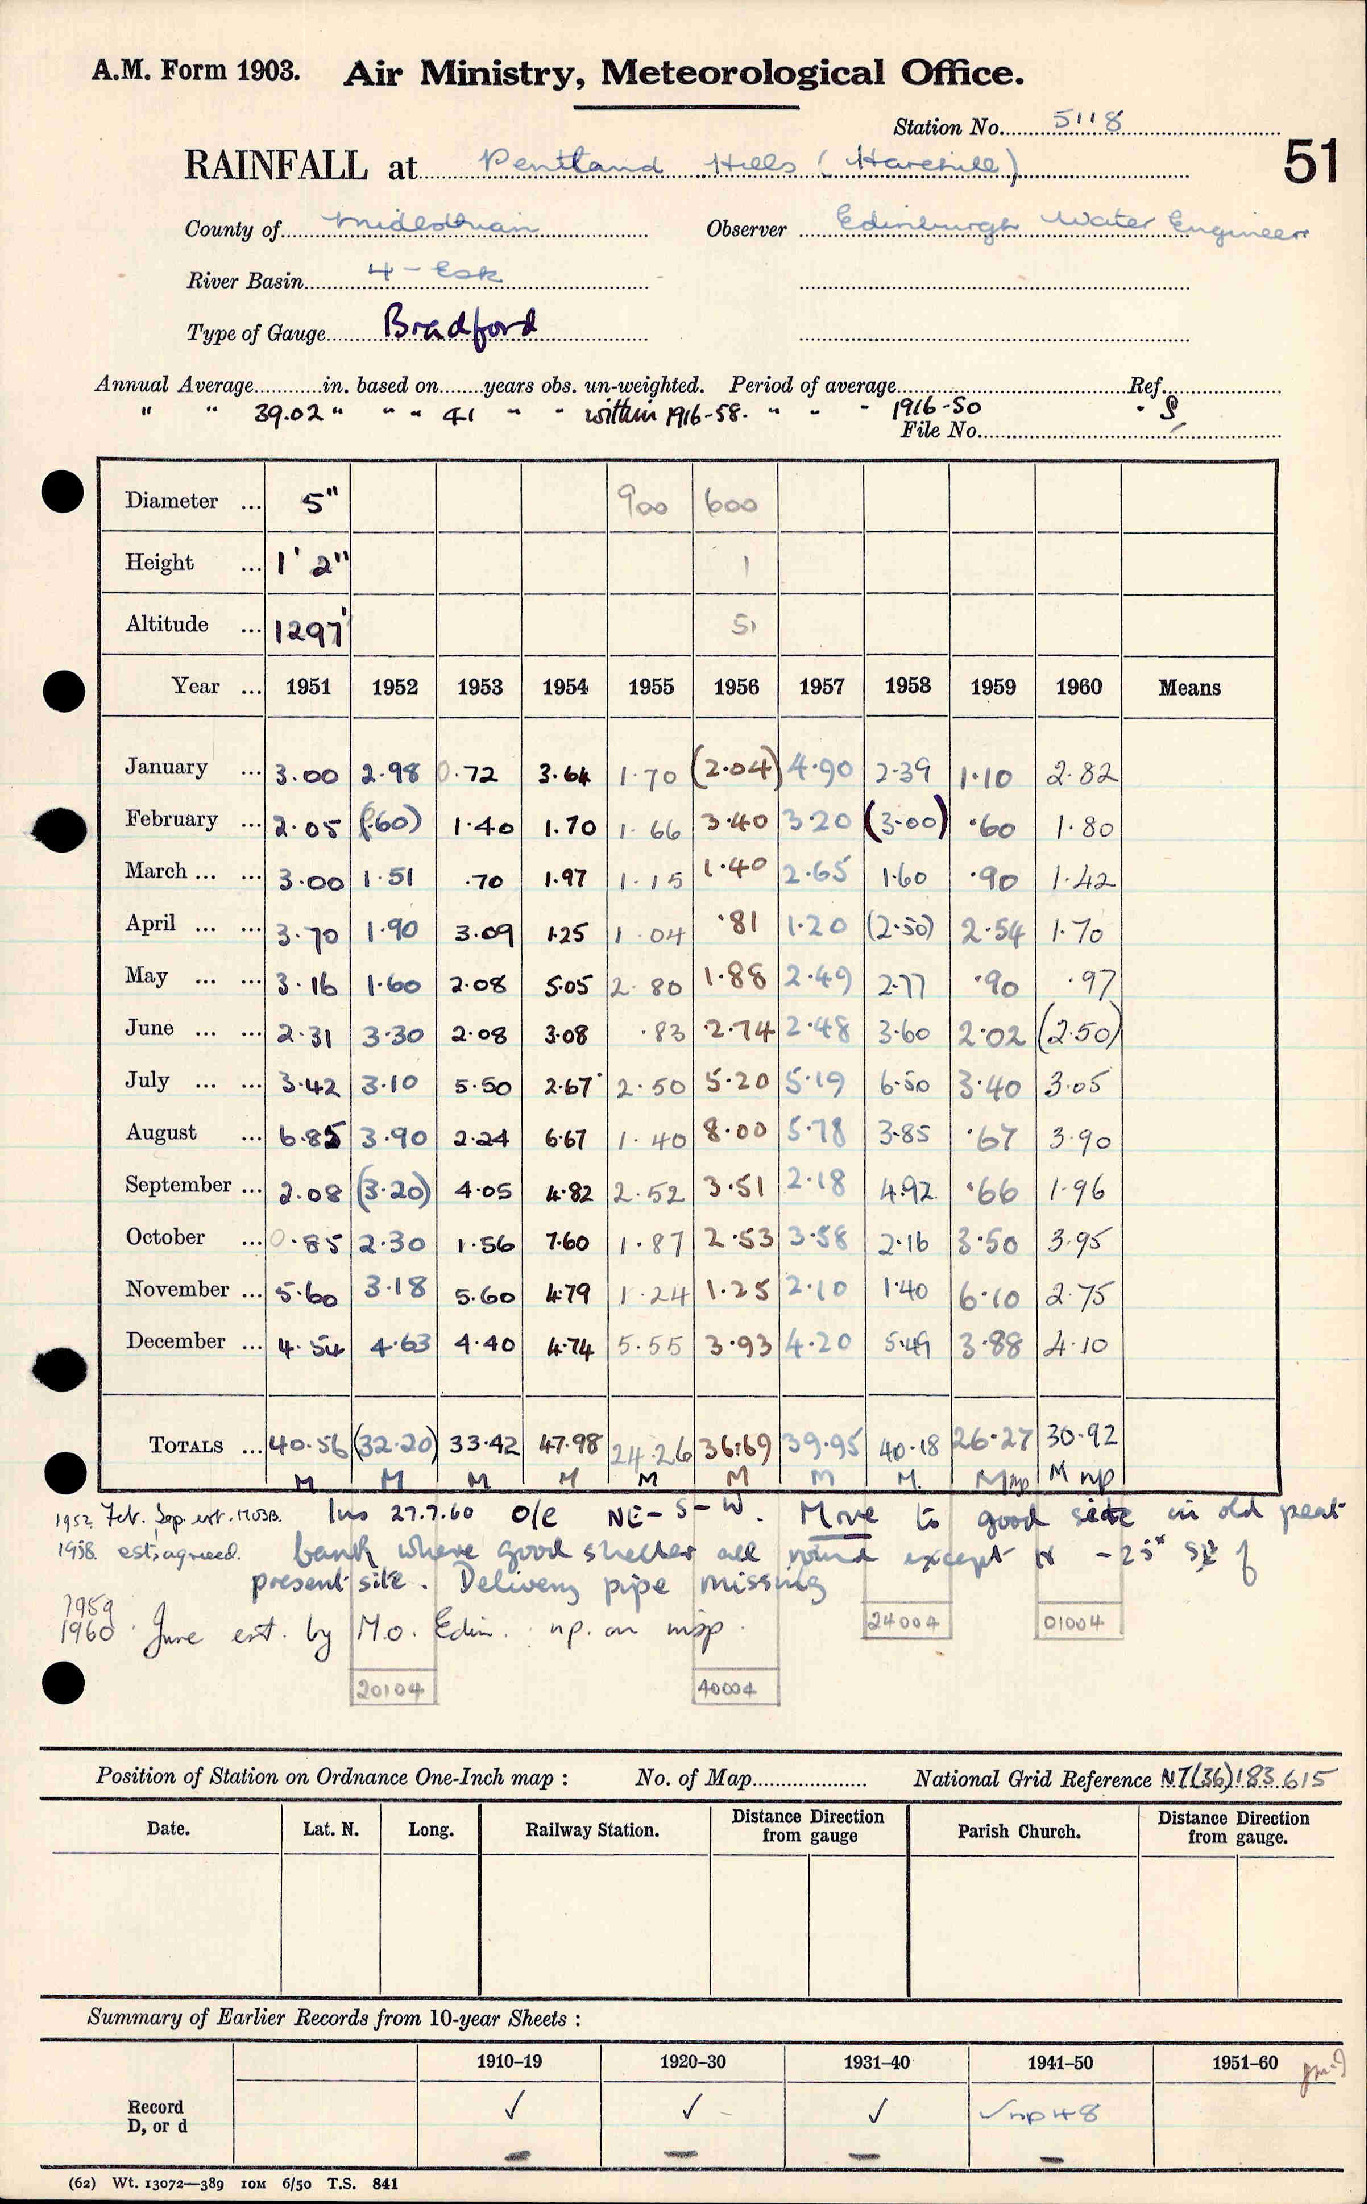 A.M. Form 1903. Air Ministry, Meteorological Office.
Station No. 5118
51
RAINFALL at Pentland Hills (Harehill)
County of Midlothian Observer Edinburgh Water Engineer
River Basin 4 - Esk
Type of Gauge Bradford
Annual Average in. based on years obs. un-weighted. Period of average Ref.
" " 39.02 " " " 41 " " within 1916-58. " " " 1916-50
File No.
Diameter ... 5" 900 600
Height ... 1' 2" 1
Altitude ... 1297' 51
Year ... 1951 1952 1953 1954 1955 1956 1957 1958 1959 1960 Means
January ... 3.00 2.98 0.72 3.64 1.70 (2.04) 4.90 2.39 1.10 2.82
February ... 2.05 (.60) 1.40 1.70 1.66 3.40 3.20 (3.00) .60 1.80
March ... ... 3.00 1.51 .70 1.97 1.15 1.40 2.65 1.60 .90 1.42
April ... ... 3.70 1.90 3.09 1.25 1.04 .81 1.20 (2.50) 2.54 1.70
May ... ... 3.16 1.60 2.08 5.05 2.80 1.88 2.49 2.77 .90 .97
June ... ... 2.31 3.30 2.08 3.08 .83 2.74 2.48 3.60 2.02 (2.50)
July ... ... 3.42 3.10 5.50 2.67 2.50 5.20 5.19 6.50 3.40 3.05
August ... 6.85 3.90 2.24 6.67 1.40 8.00 5.78 3.85 .67 3.90
September ... 2.08 (3.20) 4.05 4.82 2.52 3.51 2.18 4.92 .66 1.96
October ... 0.85 2.30 1.56 7.60 1.87 2.53 3.58 2.16 3.50 3.95
November ... 5.60 3.18 5.60 4.79 1.24 1.25 2.10 1.40 6.10 2.75
December ... 4.54 4.63 4.40 4.74 5.55 3.93 4.20 5.49 3.88 4.10
TOTALS ... 40.56 (32.20) 33.42 47.98 24.26 36.69 39.95 40.18 26.27 30.92
M M M M M M M M M np M np
1952 Feb. Sep. est. MOSB. Ins 27.7.60 O/E NE - S - W. Move to good site in old peat
1958 est; agreed. bank where good shelter all round except N - 25x SE of
present site. Delivery pipe missing
1959
1960 June est. by M.O. Edin. np. on map.
24004 01004
20104 40004
Position of Station on Ordnance One-Inch map : No. of Map National Grid Reference NT(36)183.615
Date. Lat. N. Long. Railway Station. Distance Direction from gauge Parish Church. Distance Direction from gauge.
Summary of Earlier Records from 10-year Sheets :
1910–19 1920–30 1931–40 1941–50 1951–60
Record D, or d ✓ ✓ - ✓ ✓ np 48
(62) Wt. 13072—389 10M 6/50 T.S. 841